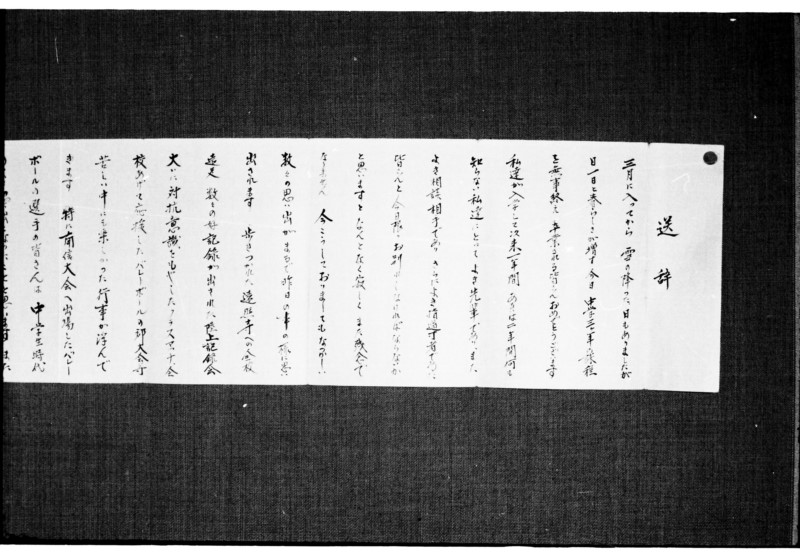 送辞
三月に入ってから 雪の降った日もありましたが
日一日と春らしさが増す今日 中学三ヶ年の課程
を無事終え 卒業される皆さんおめでとうございます
私達が入学して以来一年間 あるいは二年間何も
知らない私達にとって よき先輩であり また
よき相談相手であり さらによき指導者であった
皆さんと今日限りお別れしなければならないか
と思いますと なんとなく寂しく また残念で
なりません 今こうしておりましてもなつかしい
数々の思い出がまるで昨日の事の様に思い
出されます 歩きつかれた 遠照寺への全校
遠足 数々の好記録が出された陸上記録会
大いに対抗意識をもやしたクラスマッチ 全
校あげて応援したバレーボールの郡大会等
苦しい中にも楽しかった行事が浮んで
きます 特に南信大会へ出場したバレー
ボールの選手の皆さんは 中学生時代